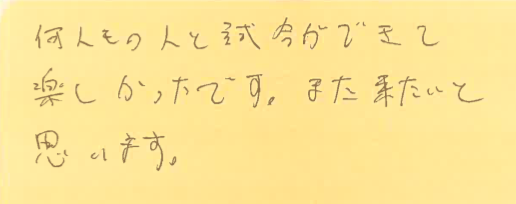 何人もの人と試合ができて
楽しかったです。また来たいと
思います。